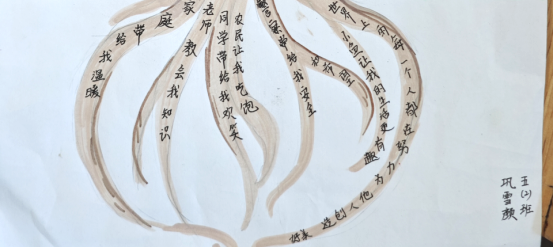 家庭带给我温暖
老师教会我知识
同学带给我欢笑
农民让我吃饱
警察带给我安全
让我的生活更有趣
世界上的每一个人都在努力为他人创造
五(2)班
巩雪颜